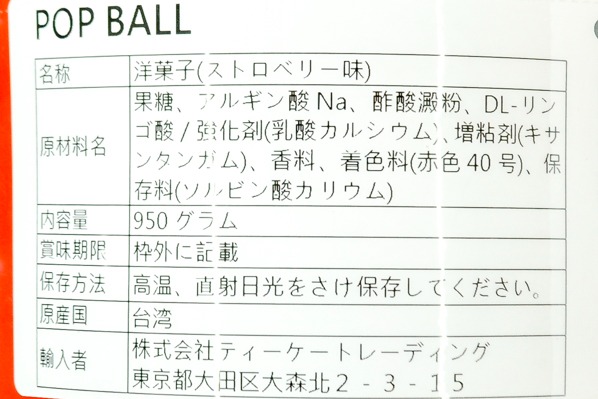 POP BALL
名称 洋菓子(ストロベリー味)
原材料名 果糖、アルギン酸Na、酢酸澱粉、DL-リン
ゴ酸/強化剤(乳酸カルシウム)、増粘剤(キサ
ンタンガム)、香料、着色料(赤色40号)、保
存料(ソルビン酸カリウム)
内容量 950グラム
賞味期限 枠外に記載
保存方法 高温、直射日光をさけ保存してください。
原産国 台湾
輸入者 株式会社ティーケートレーディング
東京都大田区大森北2-3-15